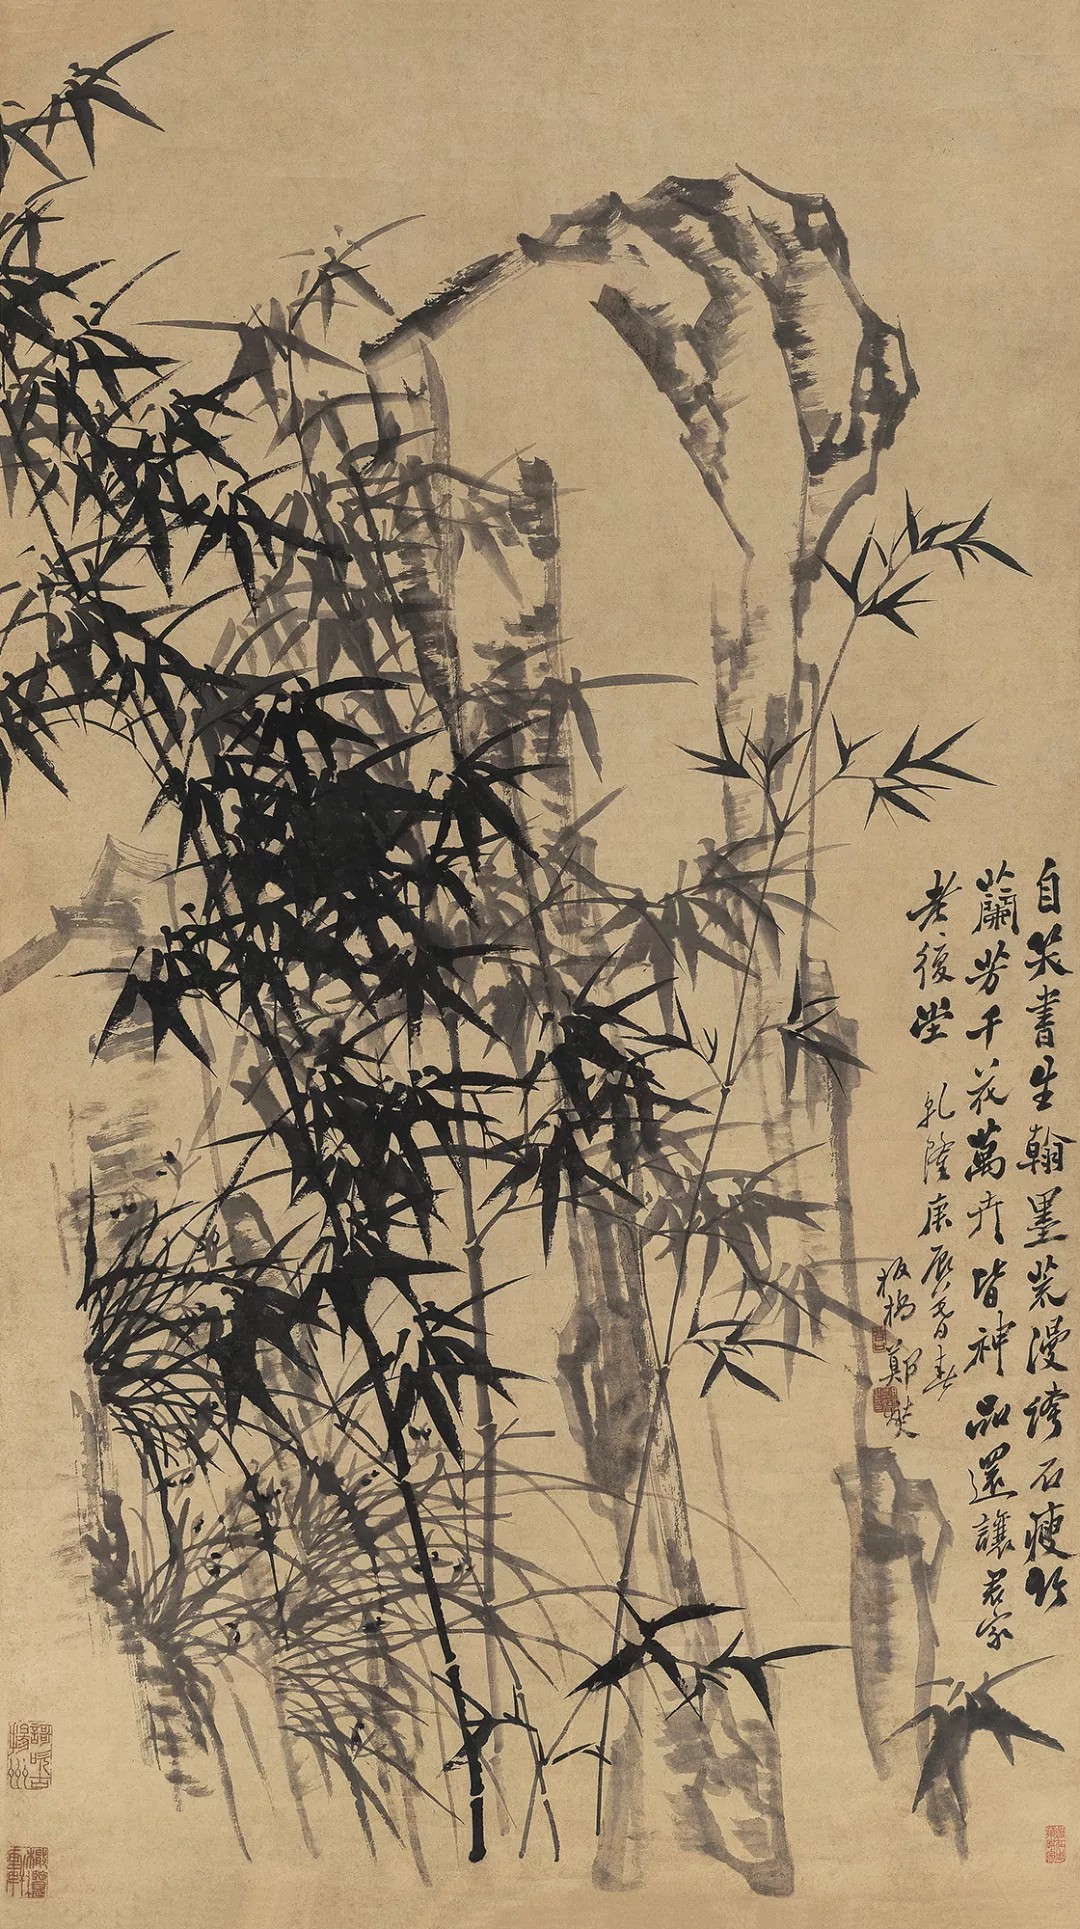 自笑書生翰墨荒漫誇石瘦竹
蘭芳千花萬卉皆神品還讓君家
老復堂 乾隆庚辰暮春
板橋鄭燮
謌吹古揚州